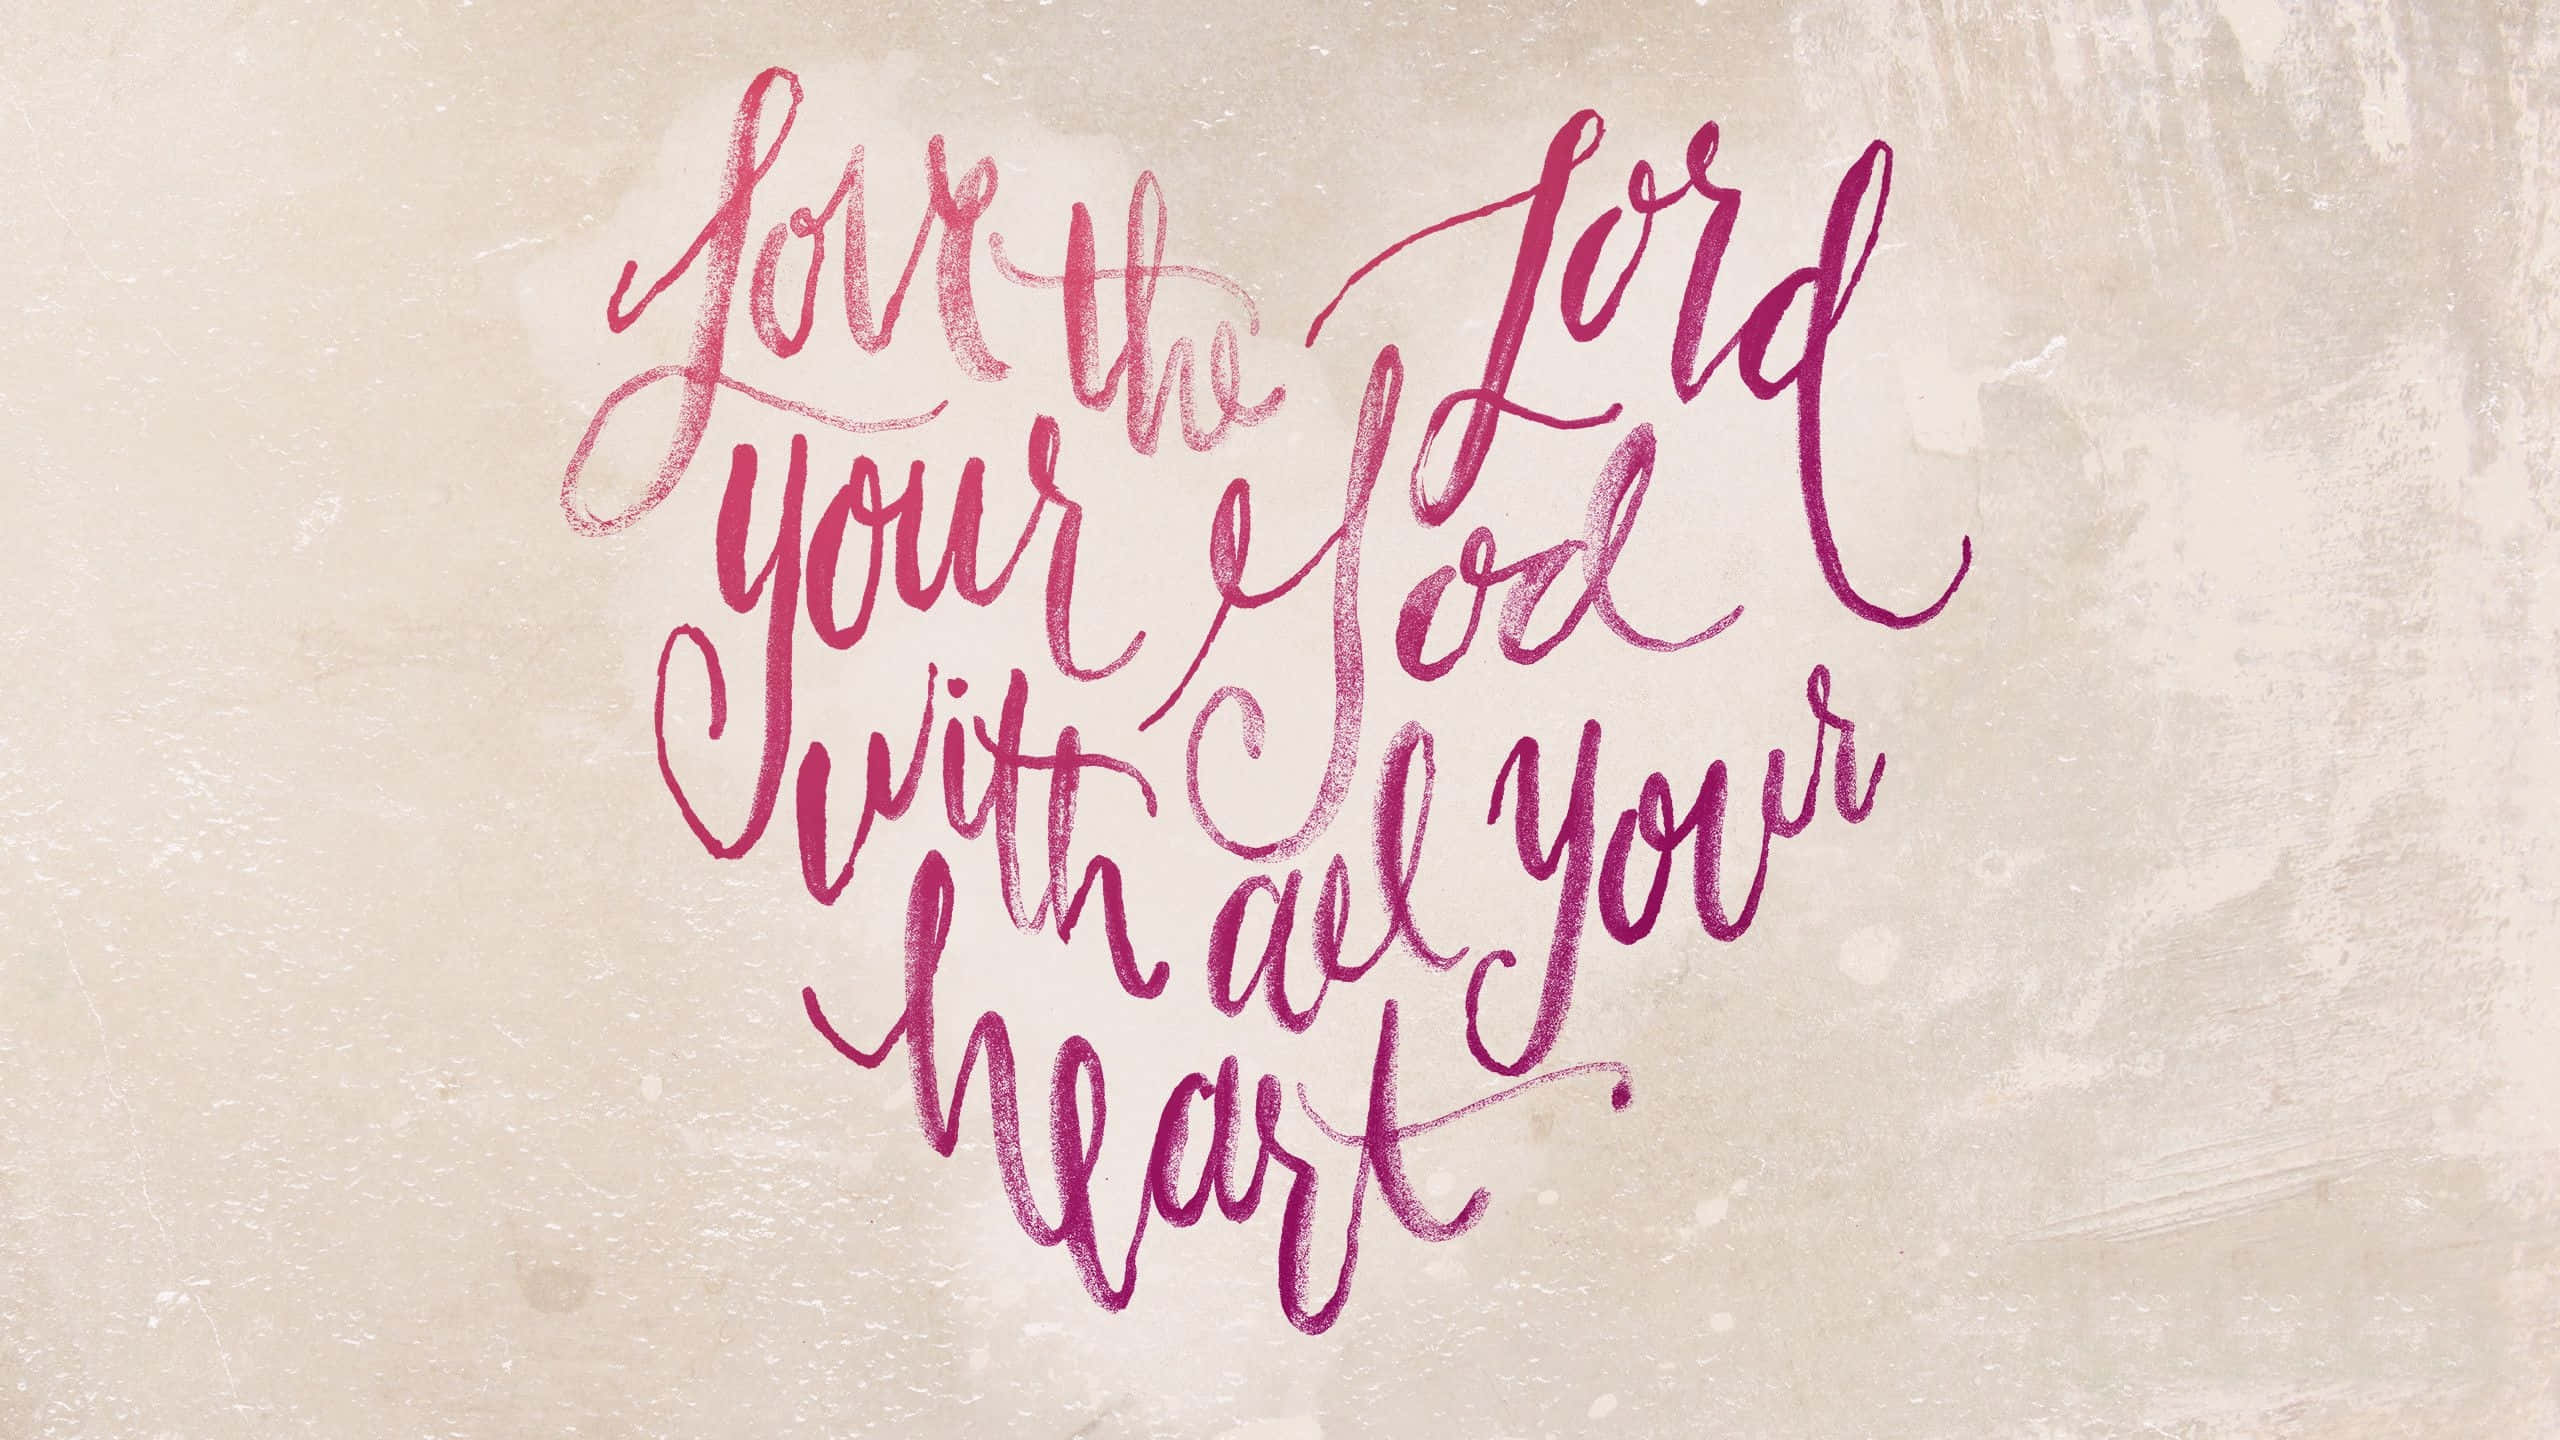 Love the Lord
your God
with all your
heart.